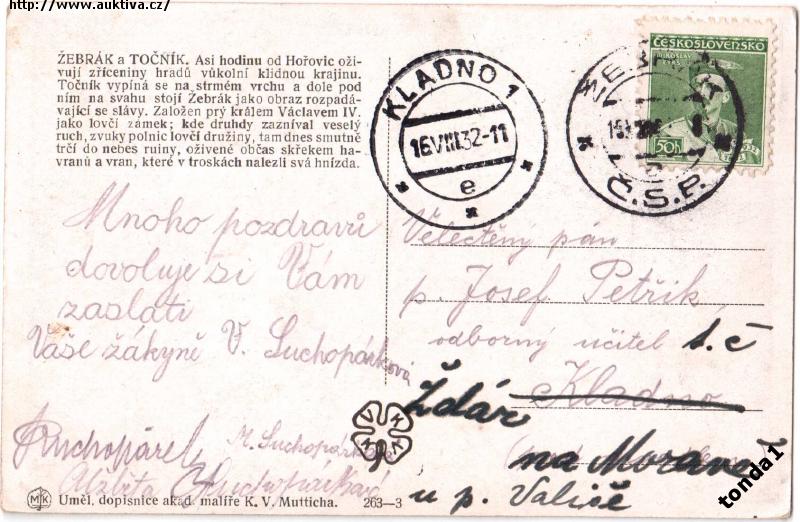 http://www.auktiva.cz/
ŽEBRÁK a TOČNÍK. Asi hodinu od Hořovic oži-
vují zříceniny hradů vůkolní klidnou krajinu.
Točník vypíná se na strmém vrchu a dole pod
ním na svahu stojí Žebrák jako obraz rozpadá-
vající se slávy. Založen prý králem Václavem IV.
jako lovčí zámek; kde druhdy zazníval veselý
ruch, zvuky polnic lovčí družiny, tam dnes smutně
trčí do nebes ruiny, oživené občas skřekem ha-
vranů a vran, které v troskách nalezli svá hnízda.
KLADNO 1
16.VIII.32-11
e
Č.S.P.
ČESKOSLOVENSKO
MIROSLAV
TYRŠ
50h
1932
Mnoho pozdravů
dovoluje si Vám
zaslati
Vaše žákyně V. Suchopárková
Suchopárel,
M. Suchopárková
Alžběta Suchopárková
Velectěný pán
p. Josef Petřík,
odborný učitel t.č
Kladno
Ždár
na Moravě
u p. Vališe
MK
Uměl. dopisnice akad. malíře K. V. Mutticha.
263—3
tonda1